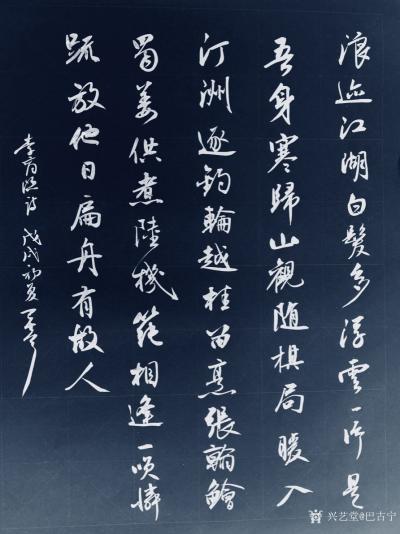 浪迹江湖白髮多浮雲一片是
吾身寒歸山觀随棋局暖入
汀洲逐釣輪越桂留烹張翰鱠
蜀姜供煮陸機蒓相逢一咲憐
疏放他日扁舟有故人
李商隐诗 戊戌初夏
兴艺堂@巴古宁